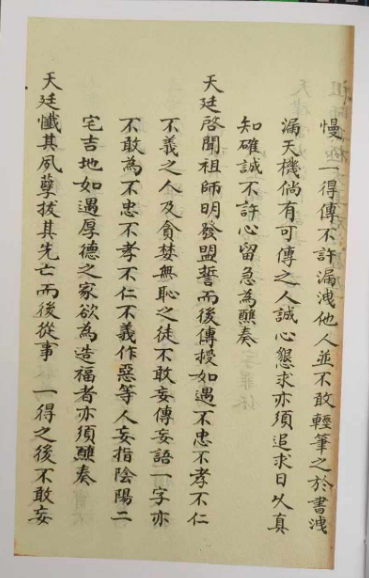 慢 一得傳不許漏洩他人並不敢輕筆之於書洩
漏天機倘有可傳之人誠心懇求亦須追求日久真
知確誠不許心留急為醮奏
天廷啓聞祖師明發盟誓而後傳授如遇不忠不孝不仁
不義之人及貪婪無恥之徒不敢妄傳妄語一字亦
不敢為不忠不孝不仁不義作惡等人妄指陰陽二
宅吉地如遇厚德之家欲為造福者亦須醮奏
天廷懺其夙孽拔其先亡而後從事 一得之後不敢妄